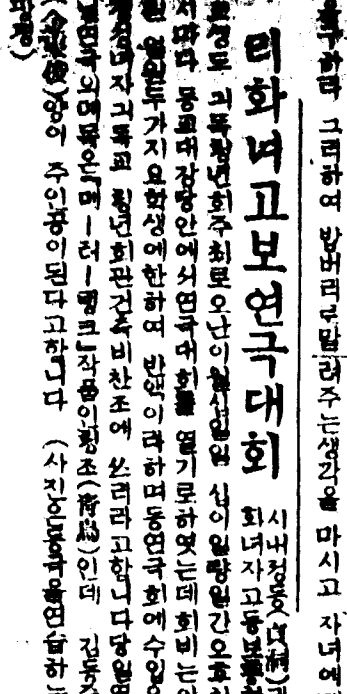 하라 그리하여 밥버러로말려주는생각을 마시고 자녀에
리화녀고보연극대회
시내정동(貞洞)리
화녀자고등보통학
긔독청년회주최로오난이월십일일 십이일량일간오후
서마다 동교대강당안에서연극대회를 열기로하엿는데회비는
일원두가지요학생에한하여 반액이라하며동연국회에수입
녀자긔독교 청년회관건축비찬조에 쓰려라고합니다당일
연극의뎨목은「메ー터ー링크」작품의청조(靑鳥)인데 김동
(俊)양이 주인공이된다고합니다 (사진은동극을연습하는
광경)